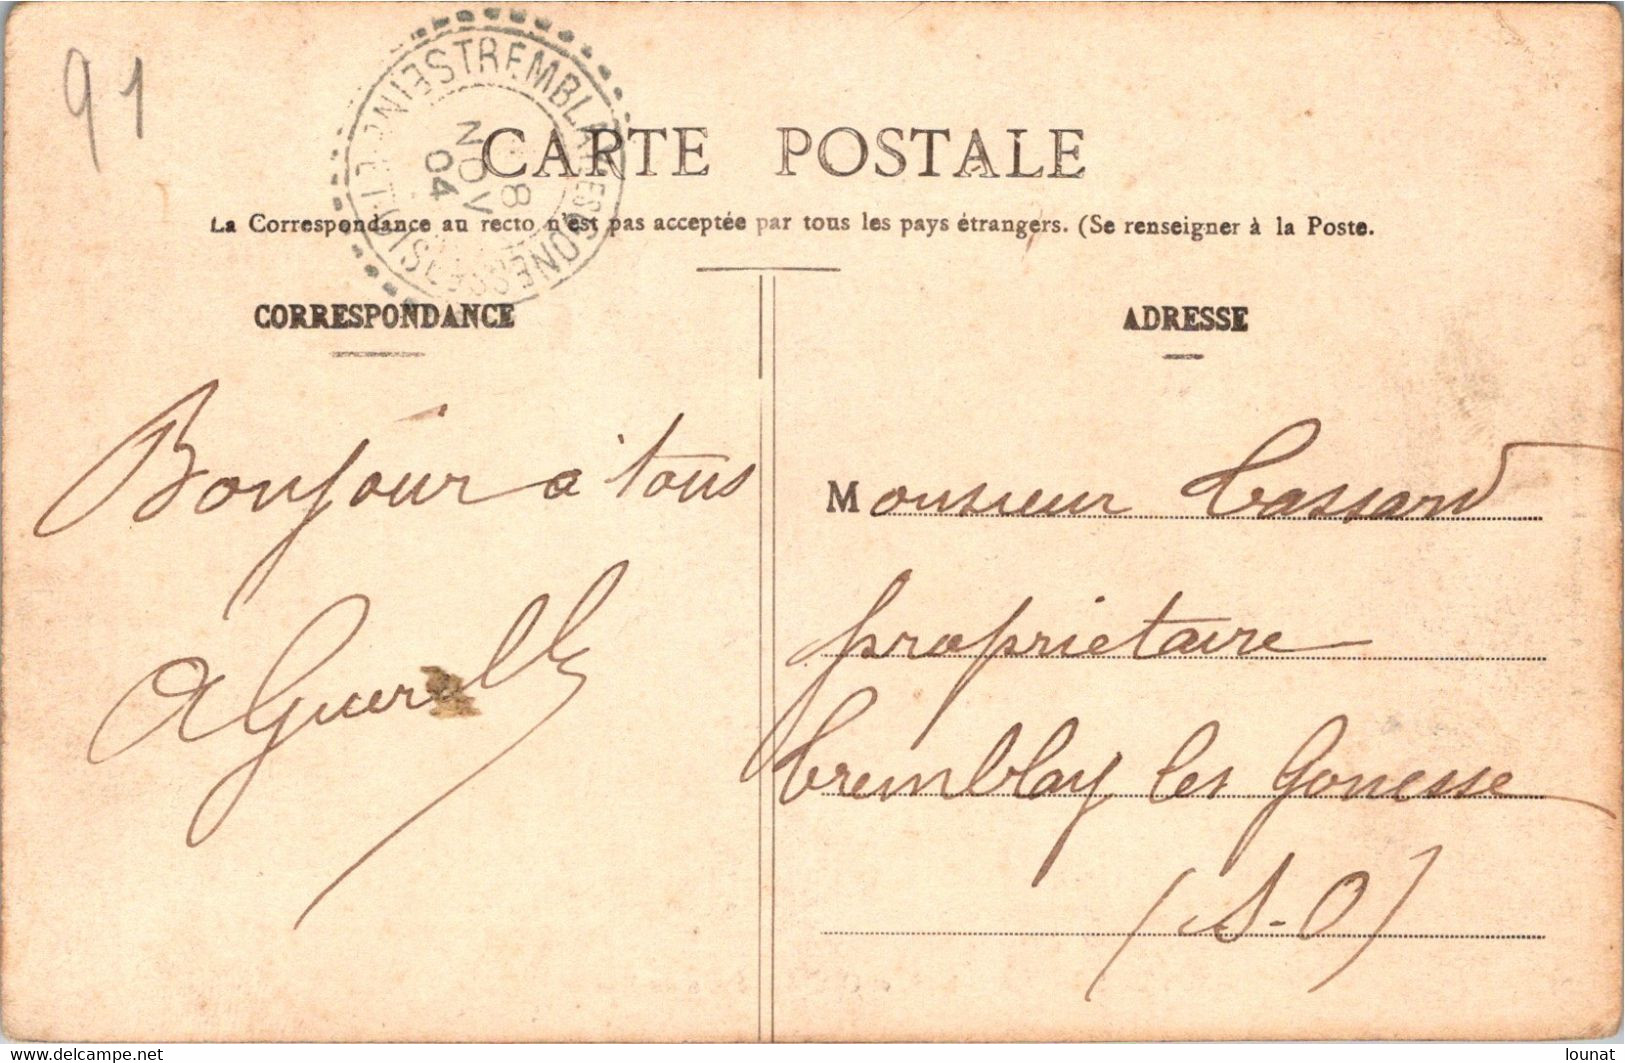 91
TREMBLAY-LES-GONESSE
SEINE-ET-OISE
8
NOV
04
CARTE POSTALE
La Correspondance au recto n'est pas acceptée par tous les pays étrangers. (Se renseigner à la Poste.
CORRESPONDANCE
ADRESSE
Bonjour a tous
A
Monsieur Tassard
propriétaire
Tremblay les Gonesse
(S-O)
www.delcampe.net
lounat